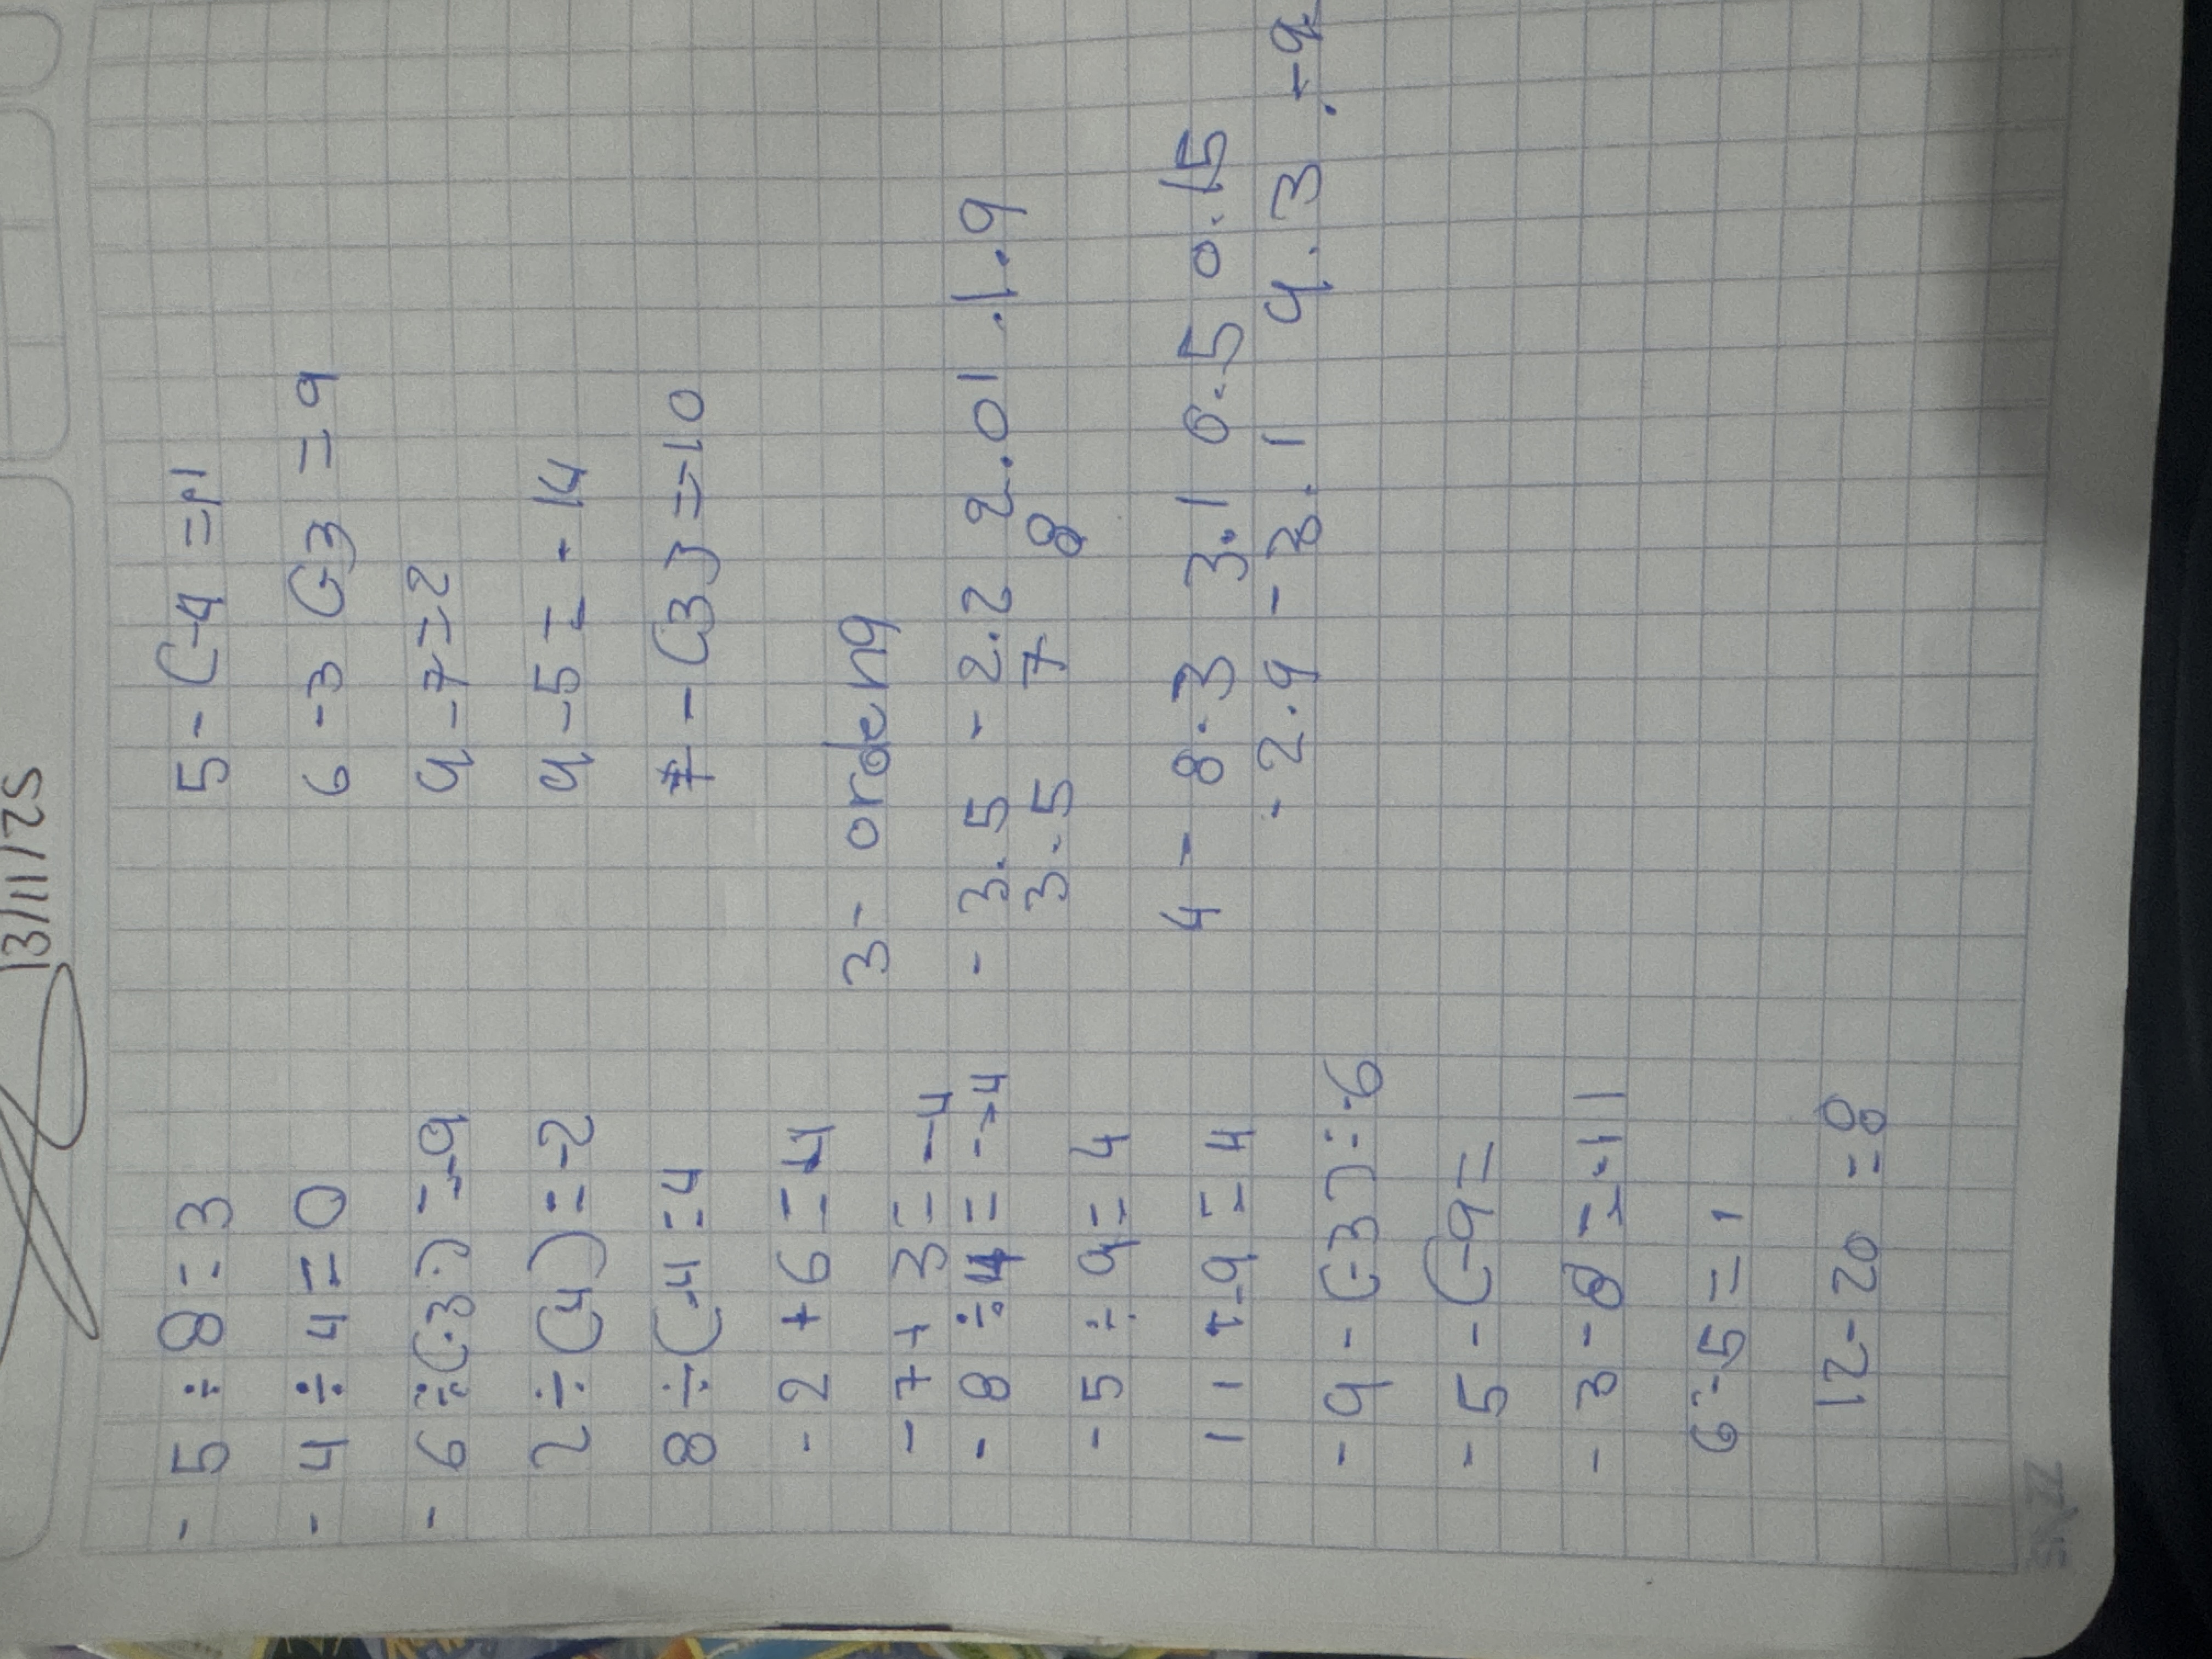 13/11/25
- 5 ÷ 8 = 3
- 4 ÷ 4 = 0
- 6 ÷ (-3) = -9
2 ÷ (4) = -2
8 ÷ (-4 = 4
- 2 + 6 = 4
- 7 + 3 = -4
- 8 ÷ 4 = -4
- 5 ÷ 9 = 4
11 + -9 = 4
- 9 - (-3) = -6
- 5 - (-9 =
- 3 - 8 = -11
6 - 5 = 1
12 - 20 = 8
5 - (-4 = 1
6 - 3 (-3 = 9
9 - 7 = 2
9 - 5 = - 14
7 - (3) = -10
3 - ordeng
- 3.5 - 2.2 2.01 .1.9
3.5 7 8
4 - 8.3 3.1 6.5 0.15
- 2.9 - 3.1 4.3 . -9